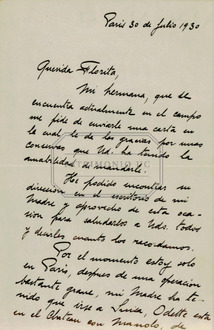 Paris 30 de Julio 1930
Querida Florita,
Mi hermana, que se
encuentra actualmente en el campo
me pide de enviarle una carta en
la cual le de las gracias por unas
conservas que Ud. ha tenido la
amabilidad de mandarle.
PATRIMONIO UC
He podido encontrar su
direccion en el escritorio de mi
Madre y aprovecho de esta oca-
sion para saludarlos a Uds. todos
y decirles cuanto los recordamos.
Por el momento estoy solo
en Paris, despues de una operacion
bastante grave, mi Madre ha te-
nido que irse a Suiza, Odette está
en el Chateau con Manolo, de